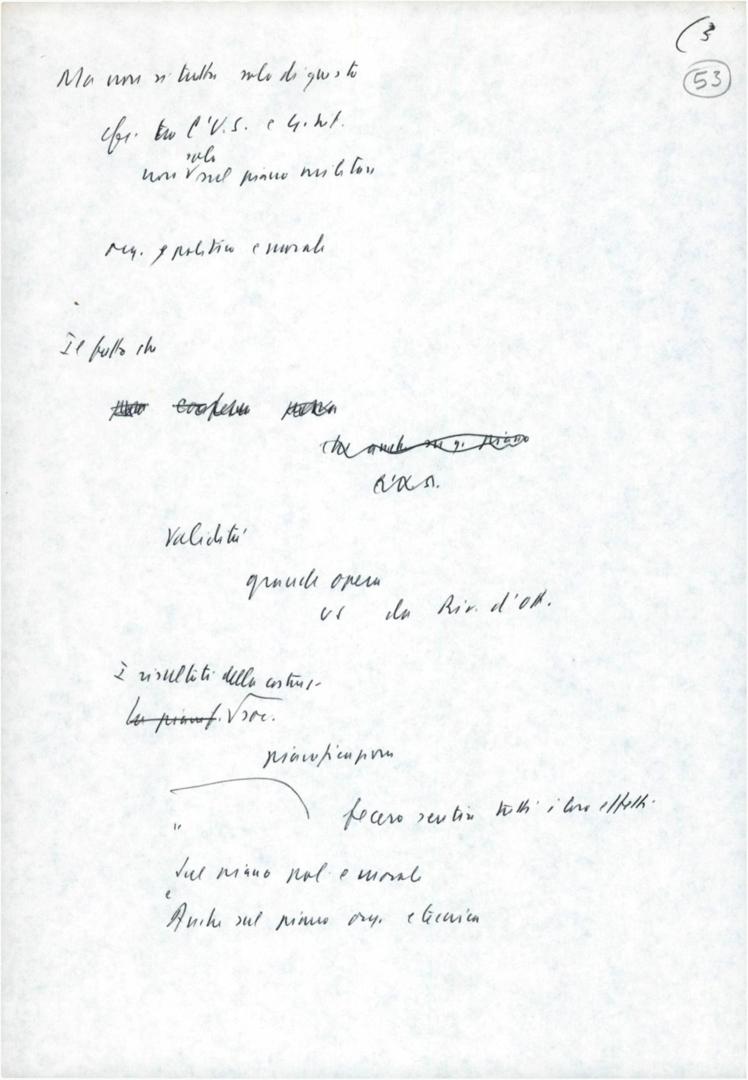 (3
53
Ma non si tratta solo di questo
tra l'U.S. e
solo
non sul piano militare
org. e politica e morale
Il fatto che
che anche piano
Validità
grande opera
US da Riv. d'Ott.
I risultati della costruz.
La pianif. soc.
pianificazione
"
fecero sentire tutti i loro effetti.
Sul piano pol e morale
e
Anche sul piano org. e tecnico